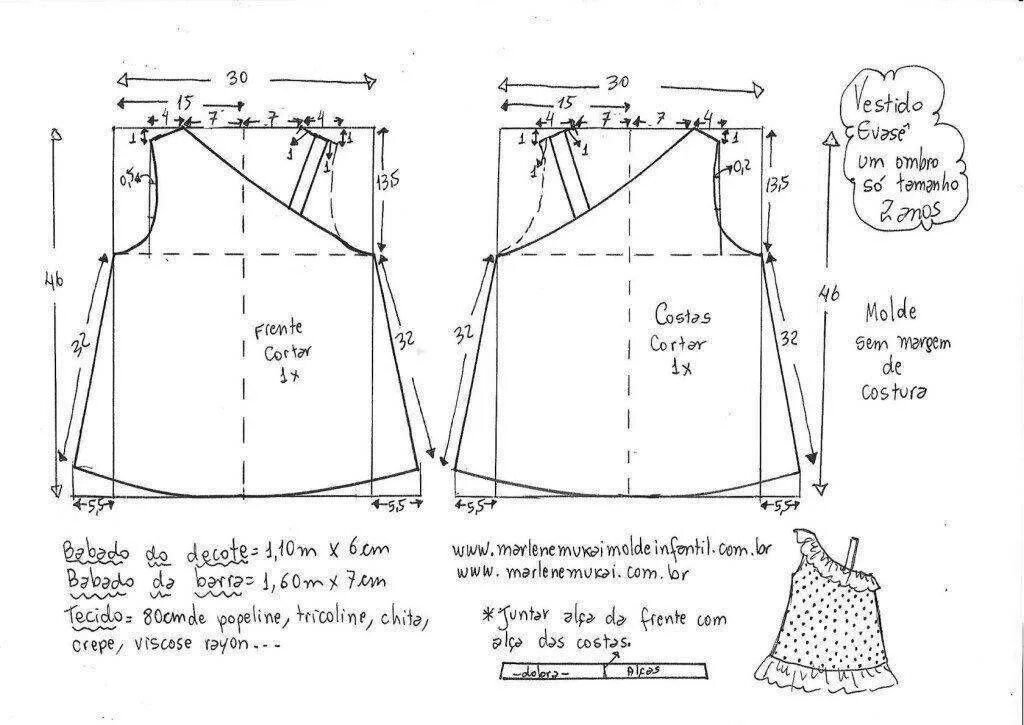 30
15
4 7 7 4
1 1
1 1
0,5
13,5
46
32
32
Frente
Cortar
1x
5,5
5,5
30
15
4 7 7 4
1 1
1 1
0,2
13,5
46
32
32
Costas
Cortar
1x
5,5
5,5
Vestido
Evasê
um ombro
só tamanho
2 anos
Molde
sem margem
de
costura
Babado do decote = 1,10m x 6cm
Babado da barra = 1,60m x 7cm
Tecido = 80cm de popeline, tricoline, chita,
crepe, viscose rayon...
www.marlenemukaimoldeinfantil.com.br
www.marlenemukai.com.br
*Juntar alça da frente com
alça das costas.
-dobra- Alças